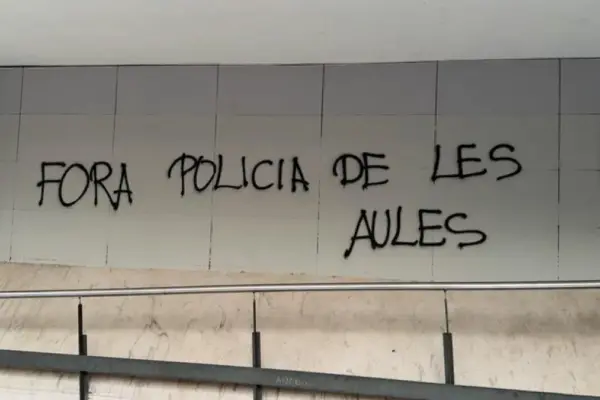 FORA POLICIA DE LES
AULES